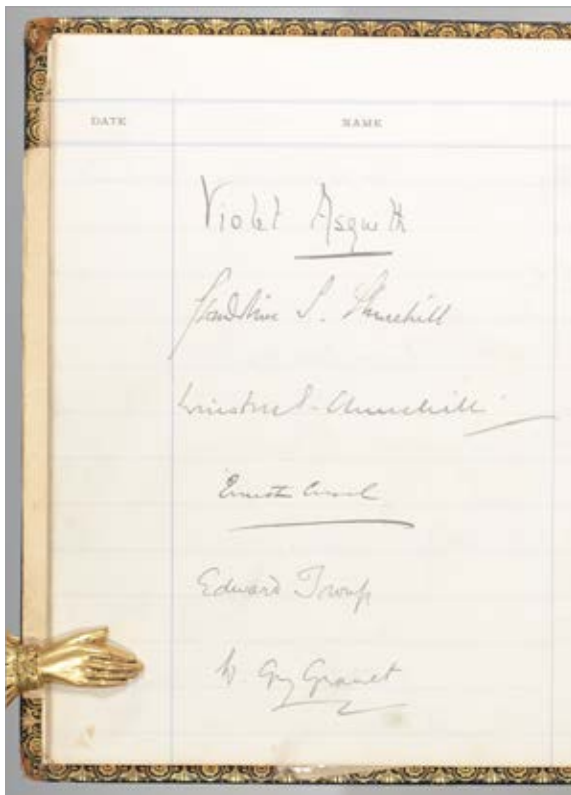 DATE NAME
Violet Asquith
S. Churchill
Winston S. Churchill
Ernest Cassel
Edward Troup
W. Guy Granet